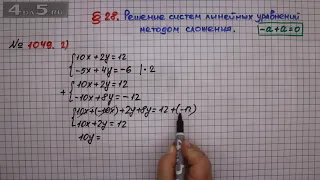 4 OUR 5.RU
§ 28. Решение систем линейных уравнений
методом сложения. -a+a=0
№ 1049. 2)
{10x+2y=12
{-5x+4y=-6 |·2
+ {10x+2y=12
{-10x+8y=-12
{10x+(-10x)+2y+8y=12+(-12)
{10x+2y=12
10y=